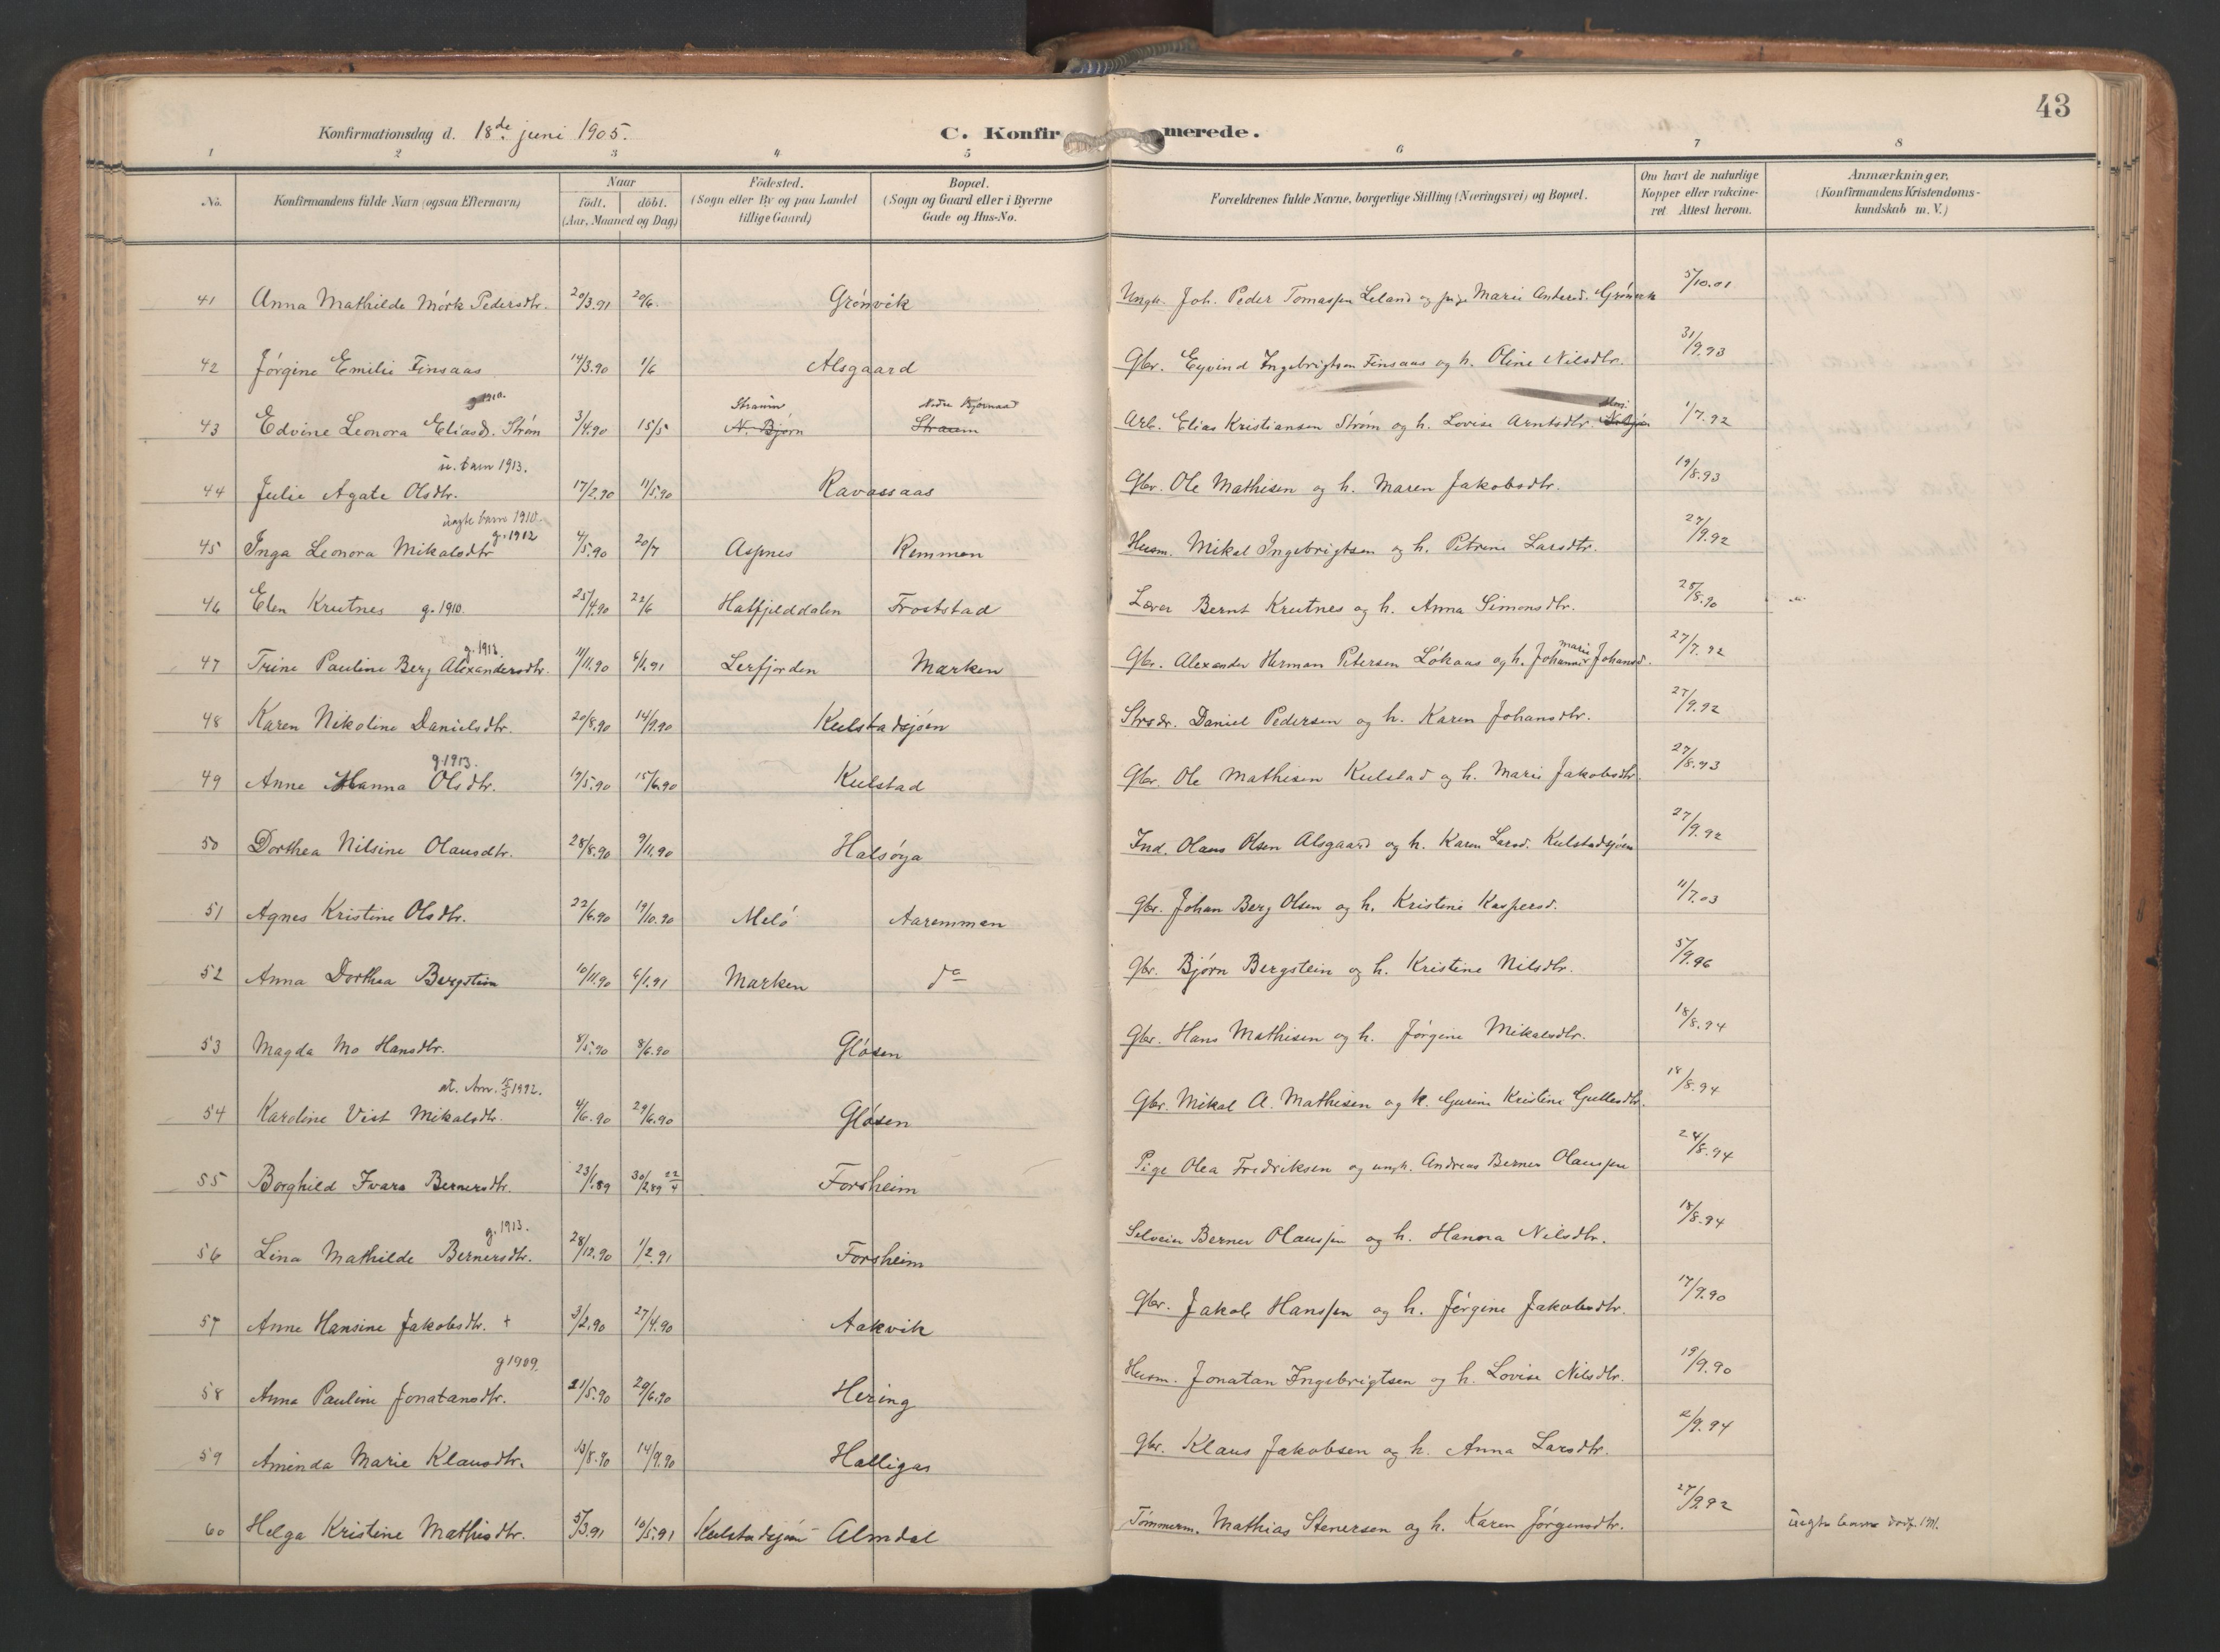 43
Konfirmationsdag d. 18de juni 1905.
C. Konfir merede.
1 2 3 4 5 6 7 8
No. Konfirmandens fulde Navn (ogsaa Efternavn) Naar født. døbt. (Aar, Maaned og Dag) Fødested. (Sogn eller By og paa Landet tillige Gaard) Bopæl. (Sogn og Gaard eller i Byerne Gade og Hus-No. Forældrenes fulde Navne, borgerlige Stilling (Næringsvei) og Bopæl. Om havt de naturlige Kopper eller vakcineret Attest herom. Anmærkninger, (Konfirmandens Kristendomskundskab m. V.)
41 Anna Mathilde Mørk Pedersdtr. 20/3.91 20/6. Grønvik Ungk. Joh. Peder Tomassen Leland og pige Marie Andersd. Grønvik 5/10.01
42 Jørgine Emilie Finsaas 14/3.90 1/6 Alsgaard Gbr. Eyvind Ingebrigtsen Finsaas og h. Oline Nilsdtr. 31/9.93
g 1910. Straum Nedre Bjørnaad
43 Edvine Leonora Eliasd. Strøm 3/4.90 15/5 N. Bjørn Straum Arb. Elias Kristiansen Strøm og h. Lovise Arntsdtr. 1/7.92
u. barn 1913.
44 Julie Agate Olsdtr. 17/2.90 11/5.90 Ravassaas Gbr. Ole Mathisen og h. Maren Jakobsdtr. 19/8.93
uegte barn 1910. g. 1912
45 Inga Leonora Mikalsdtr 4/5.90 20/7 Aspnes Remmen Husm. Mikal Ingebrigtsen og h. Petrine Larsdtr. 27/9.92
46 Elen Krutnes g. 1910. 25/4.90 22/6 Hatfjelddalen Froststad Lærer Bernt Krutnes og h. Anna Simonsdtr. 28/8.90
g. 1913.
47 Trine Pauline Berg Alexandersdtr. 11/11.90 6/1.91 Lerfjorden Marken Gbr. Alexander Herman Petersen Løkaas og h. Johanna Marie Johansd. 27/7.92
48 Karen Nikoline Danielsdtr. 20/8.90 14/9.90 Kulstadsjøen Strsdr. Daniel Pedersen og h. Karen Johansdtr. 27/9.92
g 1913.
49 Anne Hanna Olsdtr. 19/5.90 15/6.90 Kulstad Gbr. Ole Mathisen Kulstad og h. Marie Jakobsdtr. 27/8.93
50 Dorthea Nilsine Olausdtr. 28/8.90 9/11.90 Halsøya Ind. Olaus Olsen Alsgaard og h. Karen Larsd. Kulstadsjøen 27/9.92
51 Agnes Kristine Olsdtr. 22/6.90 19/10.90 Melø Aaremmen Gbr. Johan Berg Olsen og h. Kristine Kaspersd. 11/7.03
52 Anna Dorthea Bergstein 10/11.90 6/1.91 Marken do Gbr. Bjørn Bergstein og h. Kristine Nilsdtr. 5/9.96
53 Magda Mo Hansdtr. 8/5.90 8/6.90 Gløsen Gbr. Hans Mathisen og h. Jørgine Mikalsdtr. 18/8.94
1992.
54 Karoline Vist Mikalsdtr. 4/6.90 29/6.90 Gløsen Gbr. Mikal A. Mathisen og h. Gurine Kristine Gullesdtr. 18/8.94
55 Borghild Ivara Bernersdtr. 23/1.89 30/2.89 22/4 Forsheim Pige Olea Fredriksen og ungk. Andreas Berner Olaussen 24/8.94
g. 1913.
56 Lina Mathilde Bernersdtr. 28/12.90 1/2.91 Forsheim Selveier Berner Olaussen og h. Hanna Nilsdtr. 18/8.94
57 Anne Hansine Jakobsdtr. + 3/2.90 27/4.90 Aakvik Gbr. Jakob Hanssen og h. Jørgine Jakobsdtr. 17/9.90
g 1909.
58 Anna Pauline Jonatansdtr. 21/5.90 29/6.90 Hering Husm. Jonatan Ingebrigtsen og h. Lovise Nilsdtr. 19/9.90
59 Aminda Marie Klausdtr. 13/8.90 14/9.90 Halligas Gbr. Klaus Jakobsen og h. Anna Larsdtr. 2/9.94
60 Helga Kristine Mathisdtr. 5/3.91 10/5.91 Kulstadsjøen Almdal Tømmerm. Mathias Stenersen og h. Karen Jørgensdtr. 27/9.92 uegte barn 1911.